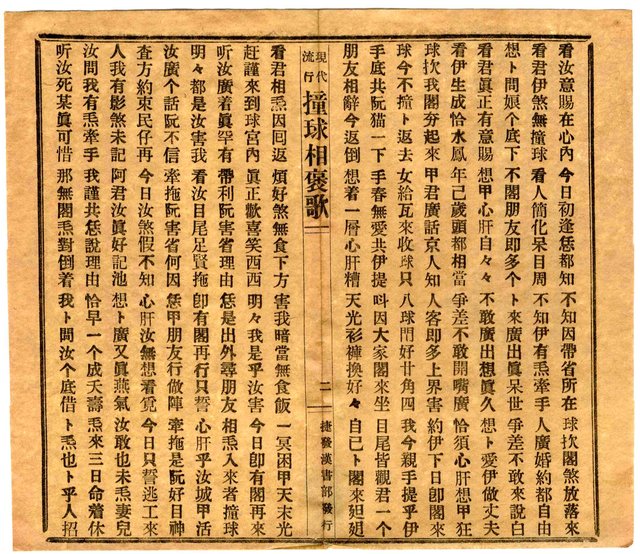 看汝意賜在心內 今日初逢恁都知 不知因帶省所在 球㧒閣煞放落來
看君伊煞無撞球 看人簡化呆目周 不知伊有𤆬牽手 人廣婚約都自由
想卜問娘个底下 不閣朋友即多个 卜來廣出真呆世 爭差不敢來說白
看君眞正有意賜 想甲心肝自々々 不敢廣出想眞久 想卜愛伊做丈夫
看伊生成恰水鳳 年己歲頭都相當 爭差不敢開嘴廣 恰須心肝想甲狂
球㧒我閣夯起來 甲君廣話京人知 人客即多上界害 約伊下日卽閣來
球今不撞卜返去 女給瓦來收球只 八球門好廿角四 我今親手提乎伊
手底共阮猫一下 手春無愛共伊提 呌因大家閣來坐 日尾皆觀君一个
朋友相辭今返倒 想着一層心肝糟 天光衫褲換好々 自己卜閣來𨑨迌
現代流行 撞球相褒歌 二 捷發漢書部發行
看君相𤆬因回返 煩好煞無食下方 害我暗當無食飯 一冥困甲天未光
赶謹來到球宮內 眞正歡喜笑西西 明々我是乎汝害 今日卽有閣再來
听汝廣着眞罕有 帶利阮害省理由 恁是出外尋朋友 相𤆬入來者撞球
明々都是汝害我 看汝目尾足賢拖 卽有閣再行只誓 心肝乎汝城甲活
汝廣个話阮不信 牽拖阮害省何因 恁甲朋友行做陣 牽拖是阮好目神
查方約束民仔再 今日汝煞假不知 心肝汝無想看覓 今日只誓逃工來
人我有影煞未記 阿君汝眞好記池 想卜廣又眞燕氣 汝敢也未𤆬妻兒
汝問我有𤆬牽手 我謹共恁說理由 恰早一个成夭壽 𤆬來三日命着休
听汝死某眞可惜 那無閣𤆬對倒着 我卜問汝个底借 卜𤆬也卜乎人招